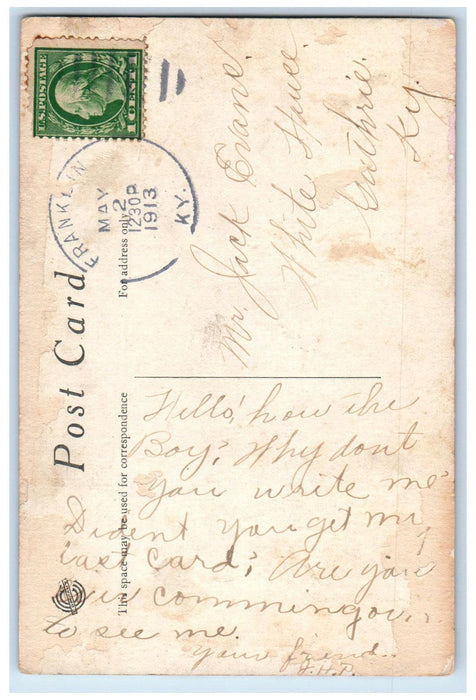 U.S. POSTAGE
1 CENT 1
FRANKLIN
MAY
2
1230P
1913
KY.
Post Card
For address only
Mr. Jack Evans.
White House.
Guthrie.
Ky.
This space may be used for correspondence
Hello! how the
Boy? Why dont
you write me
Dident you get my
last card? Are you
commin
to see me.
your friend.
J.H.P.